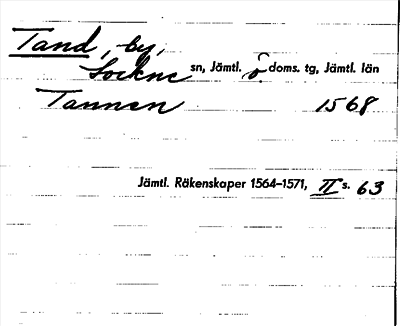 Tand, by,
Lockne sn, Jämtl. ö. doms. tg, Jämtl. län
Tannen 1568
Jämtl. Räkenskaper 1564–1571, II s. 63